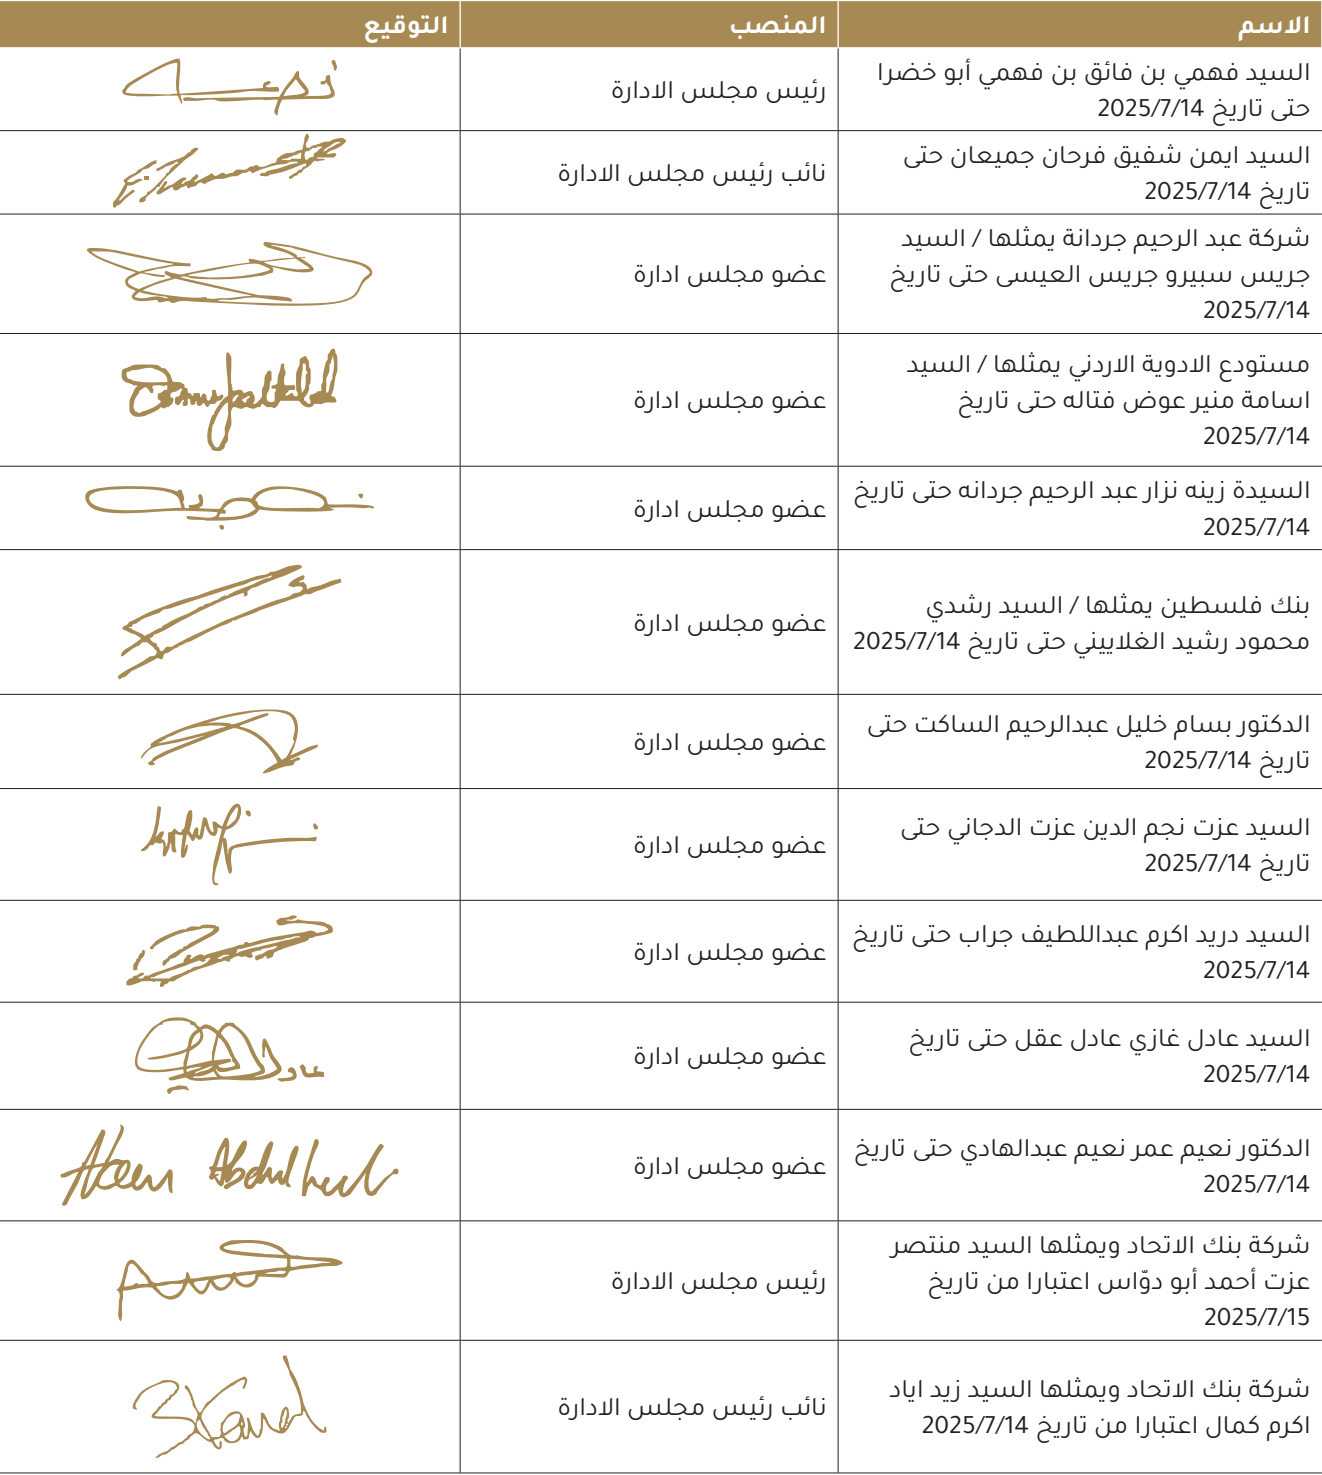 الاسم المنصب التوقيع
السيد فهمي بن فائق بن فهمي أبو خضرا
حتى تاريخ 2025/7/14
رئيس مجلس الادارة
السيد ايمن شفيق فرحان جميعان حتى
تاريخ 2025/7/14
نائب رئيس مجلس الادارة
شركة عبد الرحيم جردانة يمثلها / السيد
جريس سبيرو جريس العيسى حتى تاريخ
2025/7/14
عضو مجلس ادارة
مستودع الادوية الاردني يمثلها / السيد
اسامة منير عوض فتاله حتى تاريخ
2025/7/14
عضو مجلس ادارة
السيدة زينه نزار عبد الرحيم جردانه حتى تاريخ
2025/7/14
عضو مجلس ادارة
بنك فلسطين يمثلها / السيد رشدي
محمود رشيد الغلاييني حتى تاريخ 2025/7/14
عضو مجلس ادارة
الدكتور بسام خليل عبدالرحيم الساكت حتى
تاريخ 2025/7/14
عضو مجلس ادارة
السيد عزت نجم الدين عزت الدجاني حتى
تاريخ 2025/7/14
عضو مجلس ادارة
السيد دريد اكرم عبداللطيف جراب حتى تاريخ
2025/7/14
عضو مجلس ادارة
السيد عادل غازي عادل عقل حتى تاريخ
2025/7/14
عضو مجلس ادارة
الدكتور نعيم عمر نعيم عبدالهادي حتى تاريخ
2025/7/14
عضو مجلس ادارة
شركة بنك الاتحاد ويمثلها السيد منتصر
عزت أحمد أبو دوّاس اعتبارا من تاريخ
2025/7/15
رئيس مجلس الادارة
شركة بنك الاتحاد ويمثلها السيد زيد اياد
اكرم كمال اعتبارا من تاريخ 2025/7/14
نائب رئيس مجلس الادارة